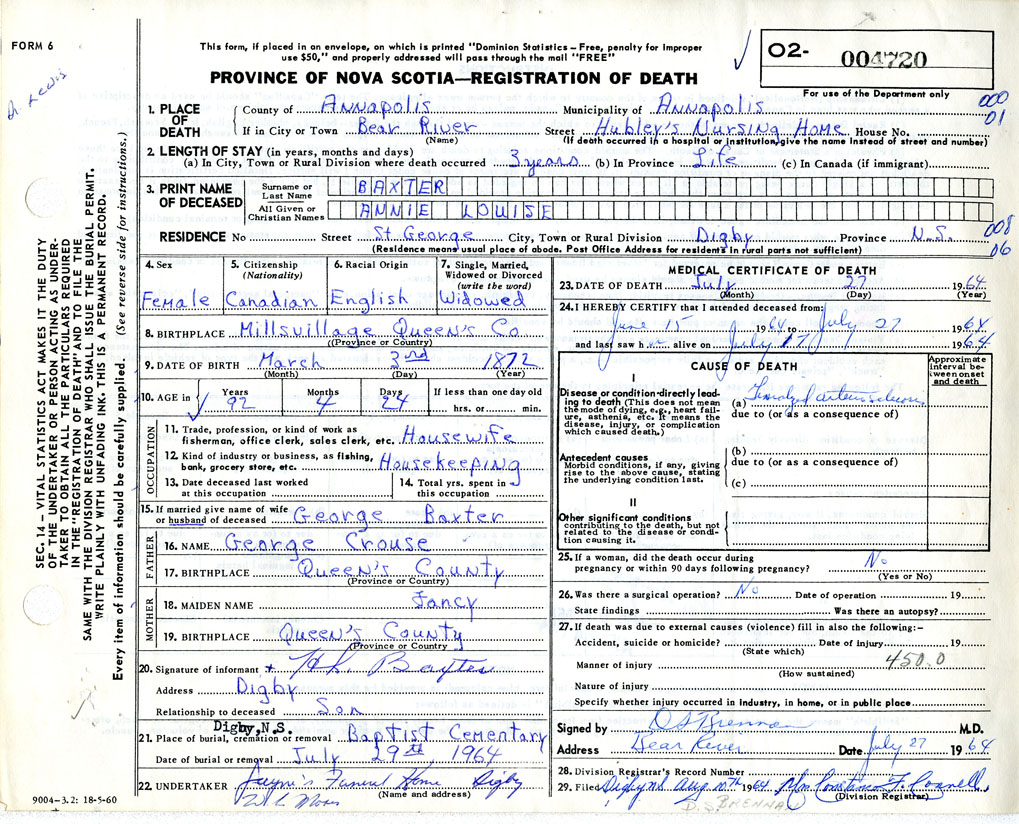 FORM 6
This form, if placed in an envelope, on which is printed "Dominion Statistics – Free, penalty for improper
use $50," and properly addressed will pass through the mail "FREE"
PROVINCE OF NOVA SCOTIA—REGISTRATION OF DEATH
02- 004720
For use of the Department only
000
01
Dr Lewis
SEC. 14 – VITAL STATISTICS ACT MAKES IT THE DUTY
OF THE UNDERTAKER OR PERSON ACTING AS UNDER-
TAKER TO OBTAIN ALL THE PARTICULARS REQUIRED
IN THE "REGISTRATION OF DEATH" AND TO FILE THE
SAME WITH THE DIVISION REGISTRAR WHO SHALL ISSUE THE BURIAL PERMIT.
WRITE PLAINLY WITH UNFADING INK. THIS IS A PERMANENT RECORD.
Every item of information should be carefully supplied. (See reverse side for instructions.)
1. PLACE OF DEATH
County of Annapolis Municipality of Annapolis
If in City or Town Bear River Street Hubley's Nursing Home House No.
(Name) (If death occurred in a hospital or institution, give the name instead of street and number)
2. LENGTH OF STAY (in years, months and days)
(a) In City, Town or Rural Division where death occurred 3 years (b) In Province Life (c) In Canada (if immigrant)
3. PRINT NAME OF DECEASED
Surname or Last Name BAXTER
All Given or Christian Names ANNIE LOUISE
008
06
RESIDENCE No Street St George City, Town or Rural Division Digby Province N.S.
(Residence means usual place of abode. Post Office Address for residents in rural parts not sufficient)
4. Sex Female
5. Citizenship (Nationality) Canadian
6. Racial Origin English
7. Single, Married, Widowed or Divorced (write the word) Widowed
8. BIRTHPLACE Millsvillage Queen's Co
(Province or Country)
9. DATE OF BIRTH March 3rd 1872
(Month) (Day) (Year)
10. AGE in Years 92 Months 4 Days 24 If less than one day old hrs. or min.
OCCUPATION
11. Trade, profession, or kind of work as
fisherman, office clerk, sales clerk, etc. Housewife
12. Kind of industry or business, as fishing,
bank, grocery store, etc. Housekeeping
13. Date deceased last worked
at this occupation
14. Total yrs. spent in
this occupation
15. If married give name of wife
or husband of deceased George Baxter
FATHER
16. NAME George Crouse
17. BIRTHPLACE Queen's County
(Province or Country)
MOTHER
18. MAIDEN NAME Fancy
19. BIRTHPLACE Queen's County
(Province or Country)
20. Signature of informant H L Baxter
Address Digby
Relationship to deceased Son
Digby, N.S.
21. Place of burial, cremation or removal Baptist Cementary
Date of burial or removal July 29th 1964
22. UNDERTAKER Jayne's Funeral Home Digby
(Name and address)
9004-3.2: 18-5-60
MEDICAL CERTIFICATE OF DEATH
23. DATE OF DEATH July 27 1964
(Month) (Day) (Year)
24. I HEREBY CERTIFY that I attended deceased from:
June 15 1964 to July 27 1964
and last saw her alive on July 17 1964
CAUSE OF DEATH
Approximate interval between onset and death
I
Disease or condition directly lead-
ing to death (This does not mean
the mode of dying, e.g., heart fail-
ure, asthenia, etc. It means the
disease, injury, or complication
which caused death.)
(a)
due to (or as a consequence of)
Antecedent causes
Morbid conditions, if any, giving
rise to the above cause, stating
the underlying condition last.
(b)
due to (or as a consequence of)
(c)
II
Other significant conditions
contributing to the death, but not
related to the disease or condi-
tion causing it.
25. If a woman, did the death occur during
pregnancy or within 90 days following pregnancy? No
(Yes or No)
26. Was there a surgical operation? No Date of operation 19
State findings Was there an autopsy?
27. If death was due to external causes (violence) fill in also the following:–
Accident, suicide or homicide? Date of injury 19
(State which)
Manner of injury 450.0
(How sustained)
Nature of injury
Specify whether injury occurred in industry, in home, or in public place
Signed by D S Brennan M.D.
Address Bear River Date July 27 1964
28. Division Registrar's Record Number
29. Filed Digby NS Aug 10th 1964 Mrs Constance F. Connell
(Division Registrar)
D.S. BRENNAN